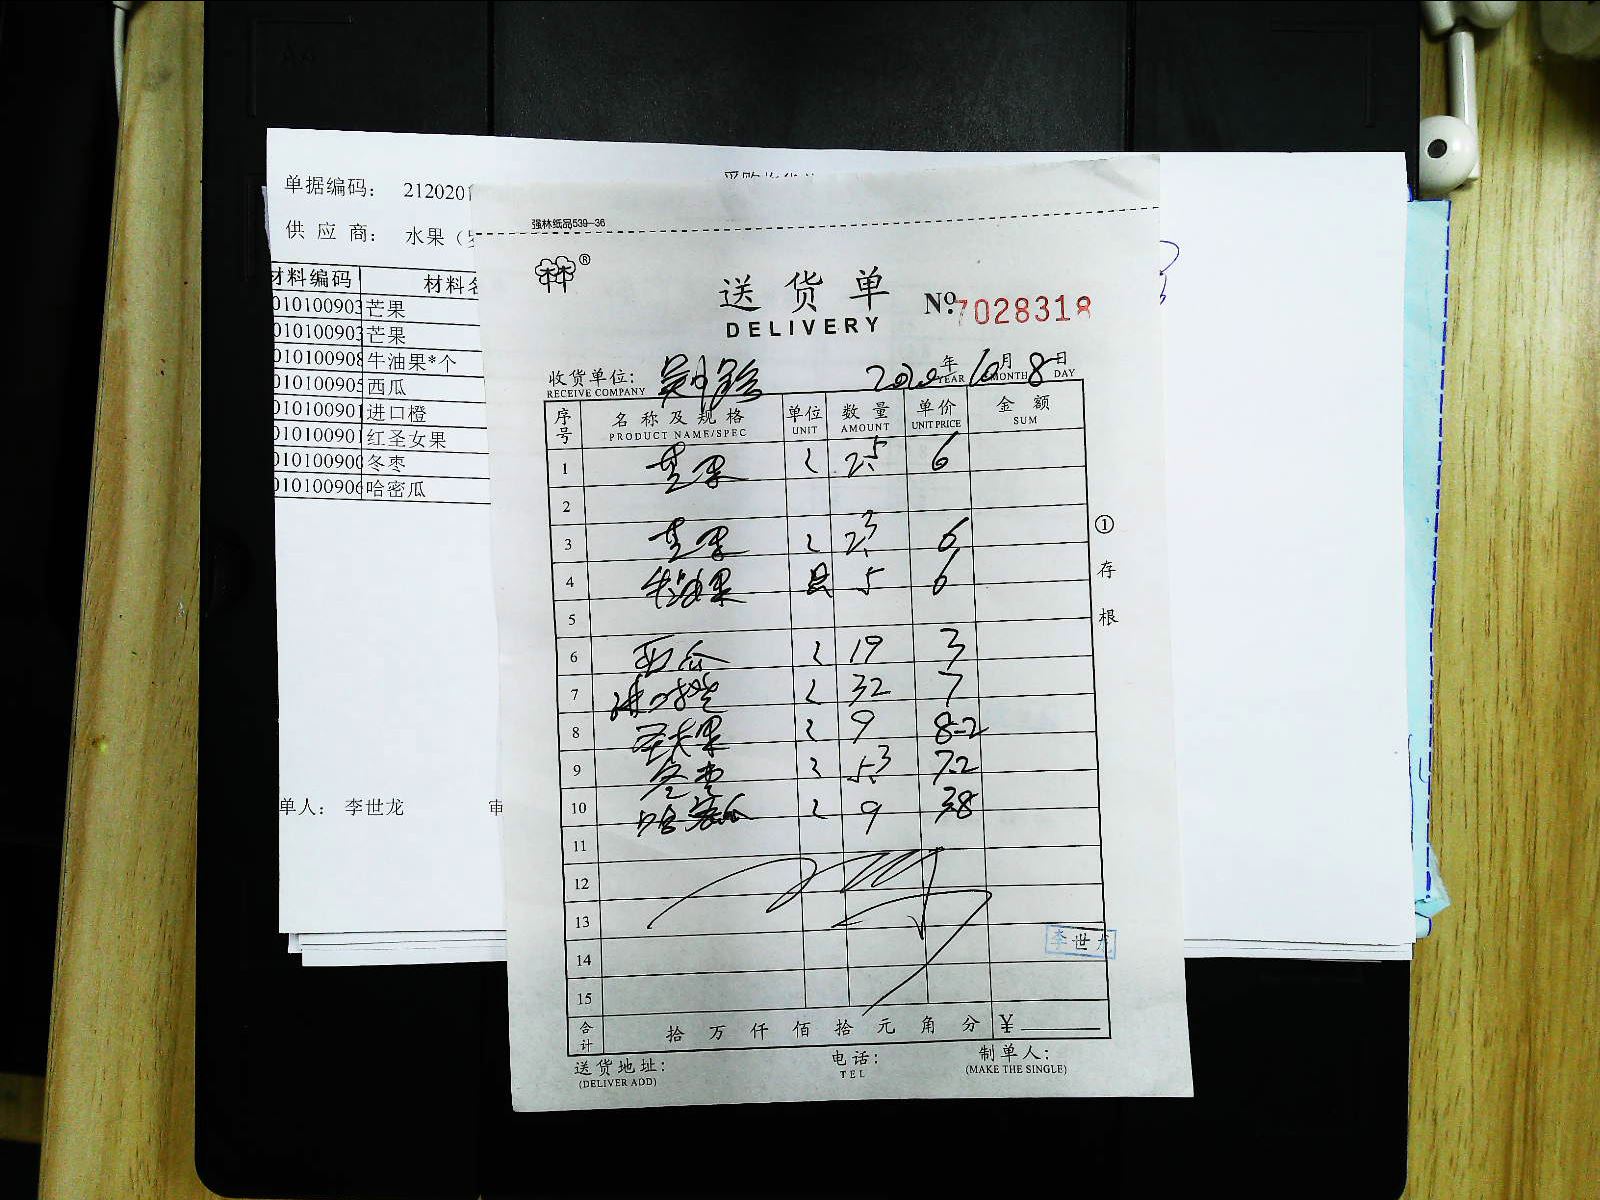 单据编码： 212020
供 应 商： 水果（
材料编码 材料名
010100903 芒果
010100903 芒果
010100908 牛油果*个
010100905 西瓜
010100901 进口橙
010100901 红圣女果
010100900 冬枣
010100906 哈密瓜
单人： 李世龙 审
强林纸品539-36
林®
送 货 单
DELIVERY
№ 7028318
收货单位:
RECEIVE COMPANY
2020年10月8日
YEAR MONTH DAY
序号 名 称 及 规 格 单位 数 量 单价 金 额
PRODUCT NAME/SPEC UNIT AMOUNT UNIT PRICE SUM
1 芒果 2.5 6
2
3 芒果 2.3 6
4 牛油果 5 6
5
6 西瓜 19 3
7 进口橙 32 7
8 圣女果 9 8.2
9 冬枣 5.3 7.2
10 哈密瓜 9 3.8
11
12
13
14
15
①存根
李世龙
合计 拾 万 仟 佰 拾 元 角 分 ¥
送货地址: 电话: 制单人:
(DELIVER ADD) TEL (MAKE THE SINGLE)